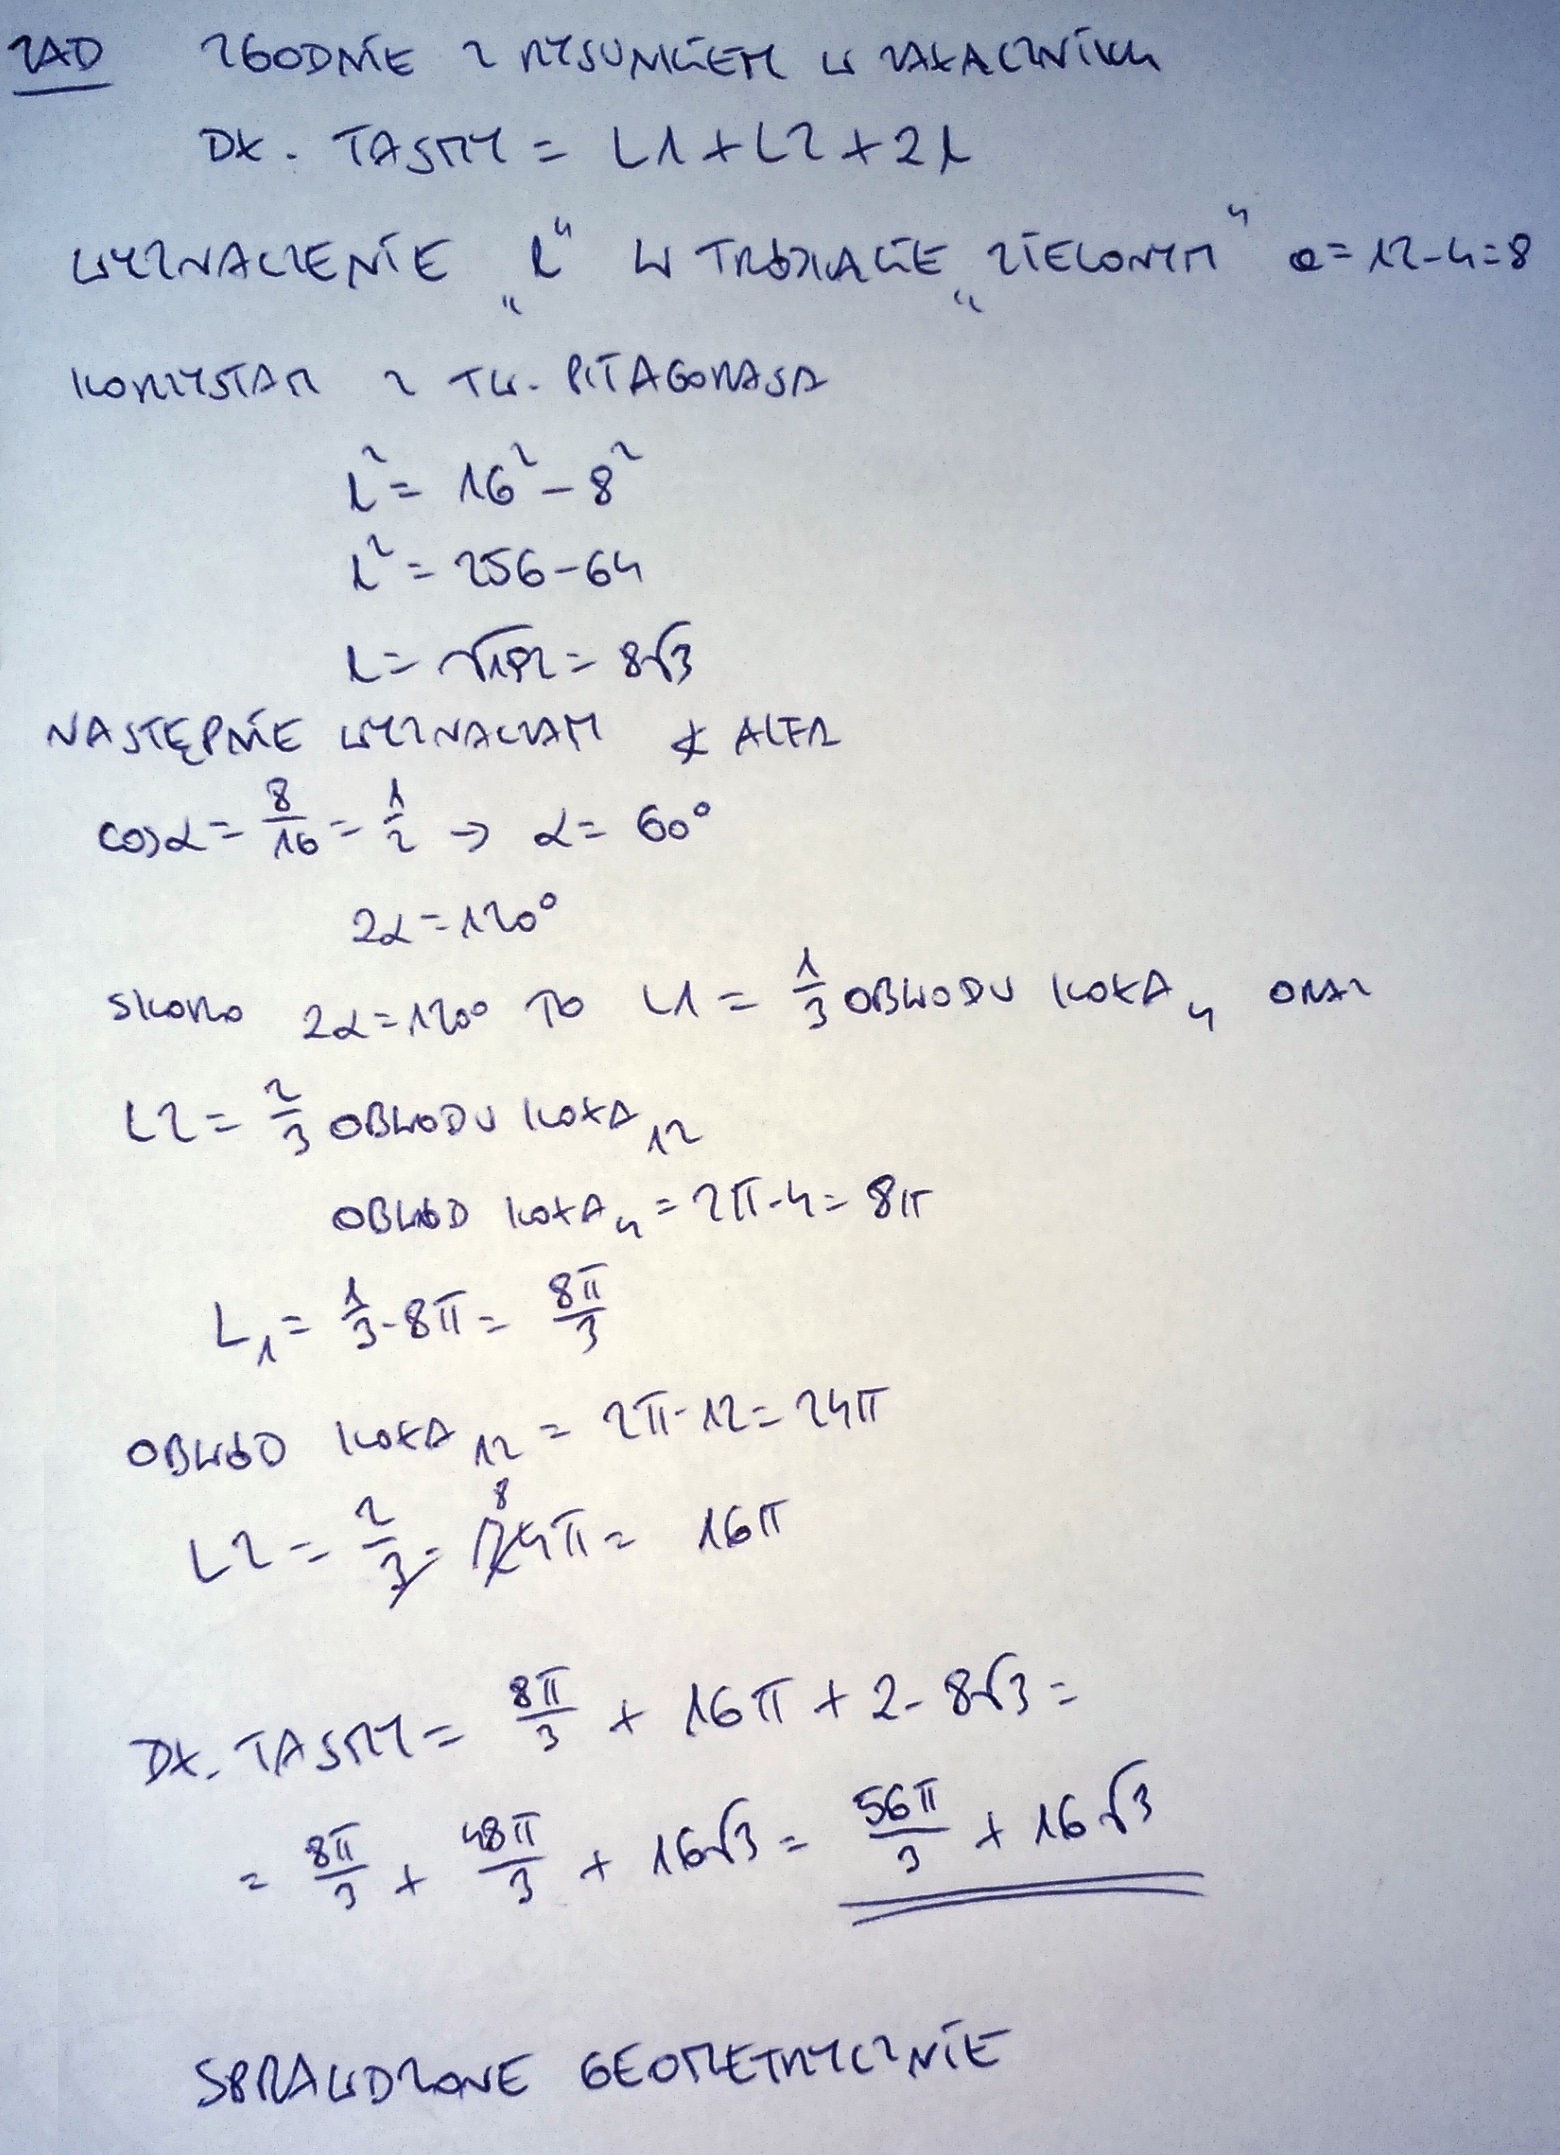 ZAD ZGODNIE Z RYSUNKIEM W ZAŁĄCZNIKU
DŁ. TAŚMY = L1 + L2 + 2l
WYZNACZENIE „l” W TRÓJKĄCIE „ZIELONYM” a = 12 - 4 = 8
KORZYSTAM Z TW. PITAGORASA
l² = 16² - 8²
l² = 256 - 64
l = √192 = 8√3
NASTĘPNIE WYZNACZAM ∢ ALFA
cosα = 8/16 = 1/2 → α = 60°
2α = 120°
SKORO 2α = 120° TO L1 = 1/3 OBWODU KOŁA₄ ORAZ
L2 = 2/3 OBWODU KOŁA₁₂
OBWÓD KOŁA₄ = 2π · 4 = 8π
L₁ = 1/3 · 8π = 8π/3
OBWÓD KOŁA₁₂ = 2π · 12 = 24π
8
L2 = 2/3 · 24π = 16π
DŁ. TAŚMY = 8π/3 + 16π + 2 · 8√3 =
= 8π/3 + 48π/3 + 16√3 = 56π/3 + 16√3
SPRAWDZONE GEOMETRYCZNIE